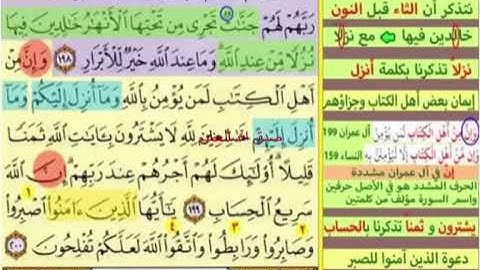 رَبَّهُمْ لَهُمْ جَنَّٰتٌ تَجْرِى مِن تَحْتِهَا ٱلْأَنْهَٰرُ خَٰلِدِينَ فِيهَا
نُزُلًا مِّنْ عِندِ ٱللَّهِ وَمَا عِندَ ٱللَّهِ خَيْرٌ لِّلْأَبْرَارِ ١٩٨ وَإِنَّ مِنْ
أَهْلِ ٱلْكِتَٰبِ لَمَن يُؤْمِنُ بِٱللَّهِ وَمَآ أُنزِلَ إِلَيْكُمْ وَمَآ
أُنزِلَ إِلَيْهِمْ لِلَّهِ لَا يَشْتَرُونَ بِـَٔايَٰتِ ٱللَّهِ ثَمَنًا
قَلِيلًا أُو۟لَٰٓئِكَ لَهُمْ أَجْرُهُمْ عِندَ رَبِّهِمْ إِنَّ ٱللَّهَ
سَرِيعُ ٱلْحِسَابِ ١٩٩ يَٰٓأَيُّهَا ٱلَّذِينَ ءَامَنُوا۟ ٱصْبِرُوا۟ ١
وَصَابِرُوا۟ وَرَابِطُوا۟ وَٱتَّقُوا۟ ٱللَّهَ لَعَلَّكُمْ تُفْلِحُونَ ٢٠٠ ٢ ٣ ٤
نتذكر أن الثاء قبل النون
خالدين فيها مع نزلا
نزلاً تذكرنا بكلمة أنزل
إيمان بعض أهل الكتاب وجزاؤهم
وَإِنَّ مِنْ أَهْلِ الْكِتَابِ لَمَن يُؤْمِنُ آل عمران 199
وَإِن مِّنْ أَهْلِ الْكِتَابِ إِلَّا لَيُؤْمِنَنَّ بِهِ النساء 159
إن في آل عمران مشددة
الحرف المشدد هو في الأصل حرفين
واسم السورة مؤلف من كلمتين
يشترون و ثمناً تذكرنا بالحساب
دعوة الذين آمنوا للصبر